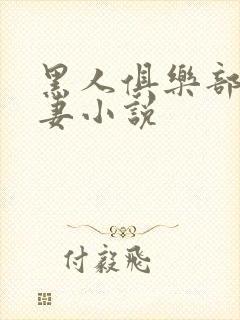 黑人俱樂部
妻小說
付毅飛